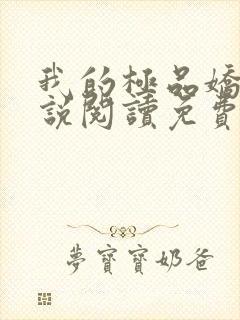 我的極品嬌
說閱讀免費
夢寶寶奶爸